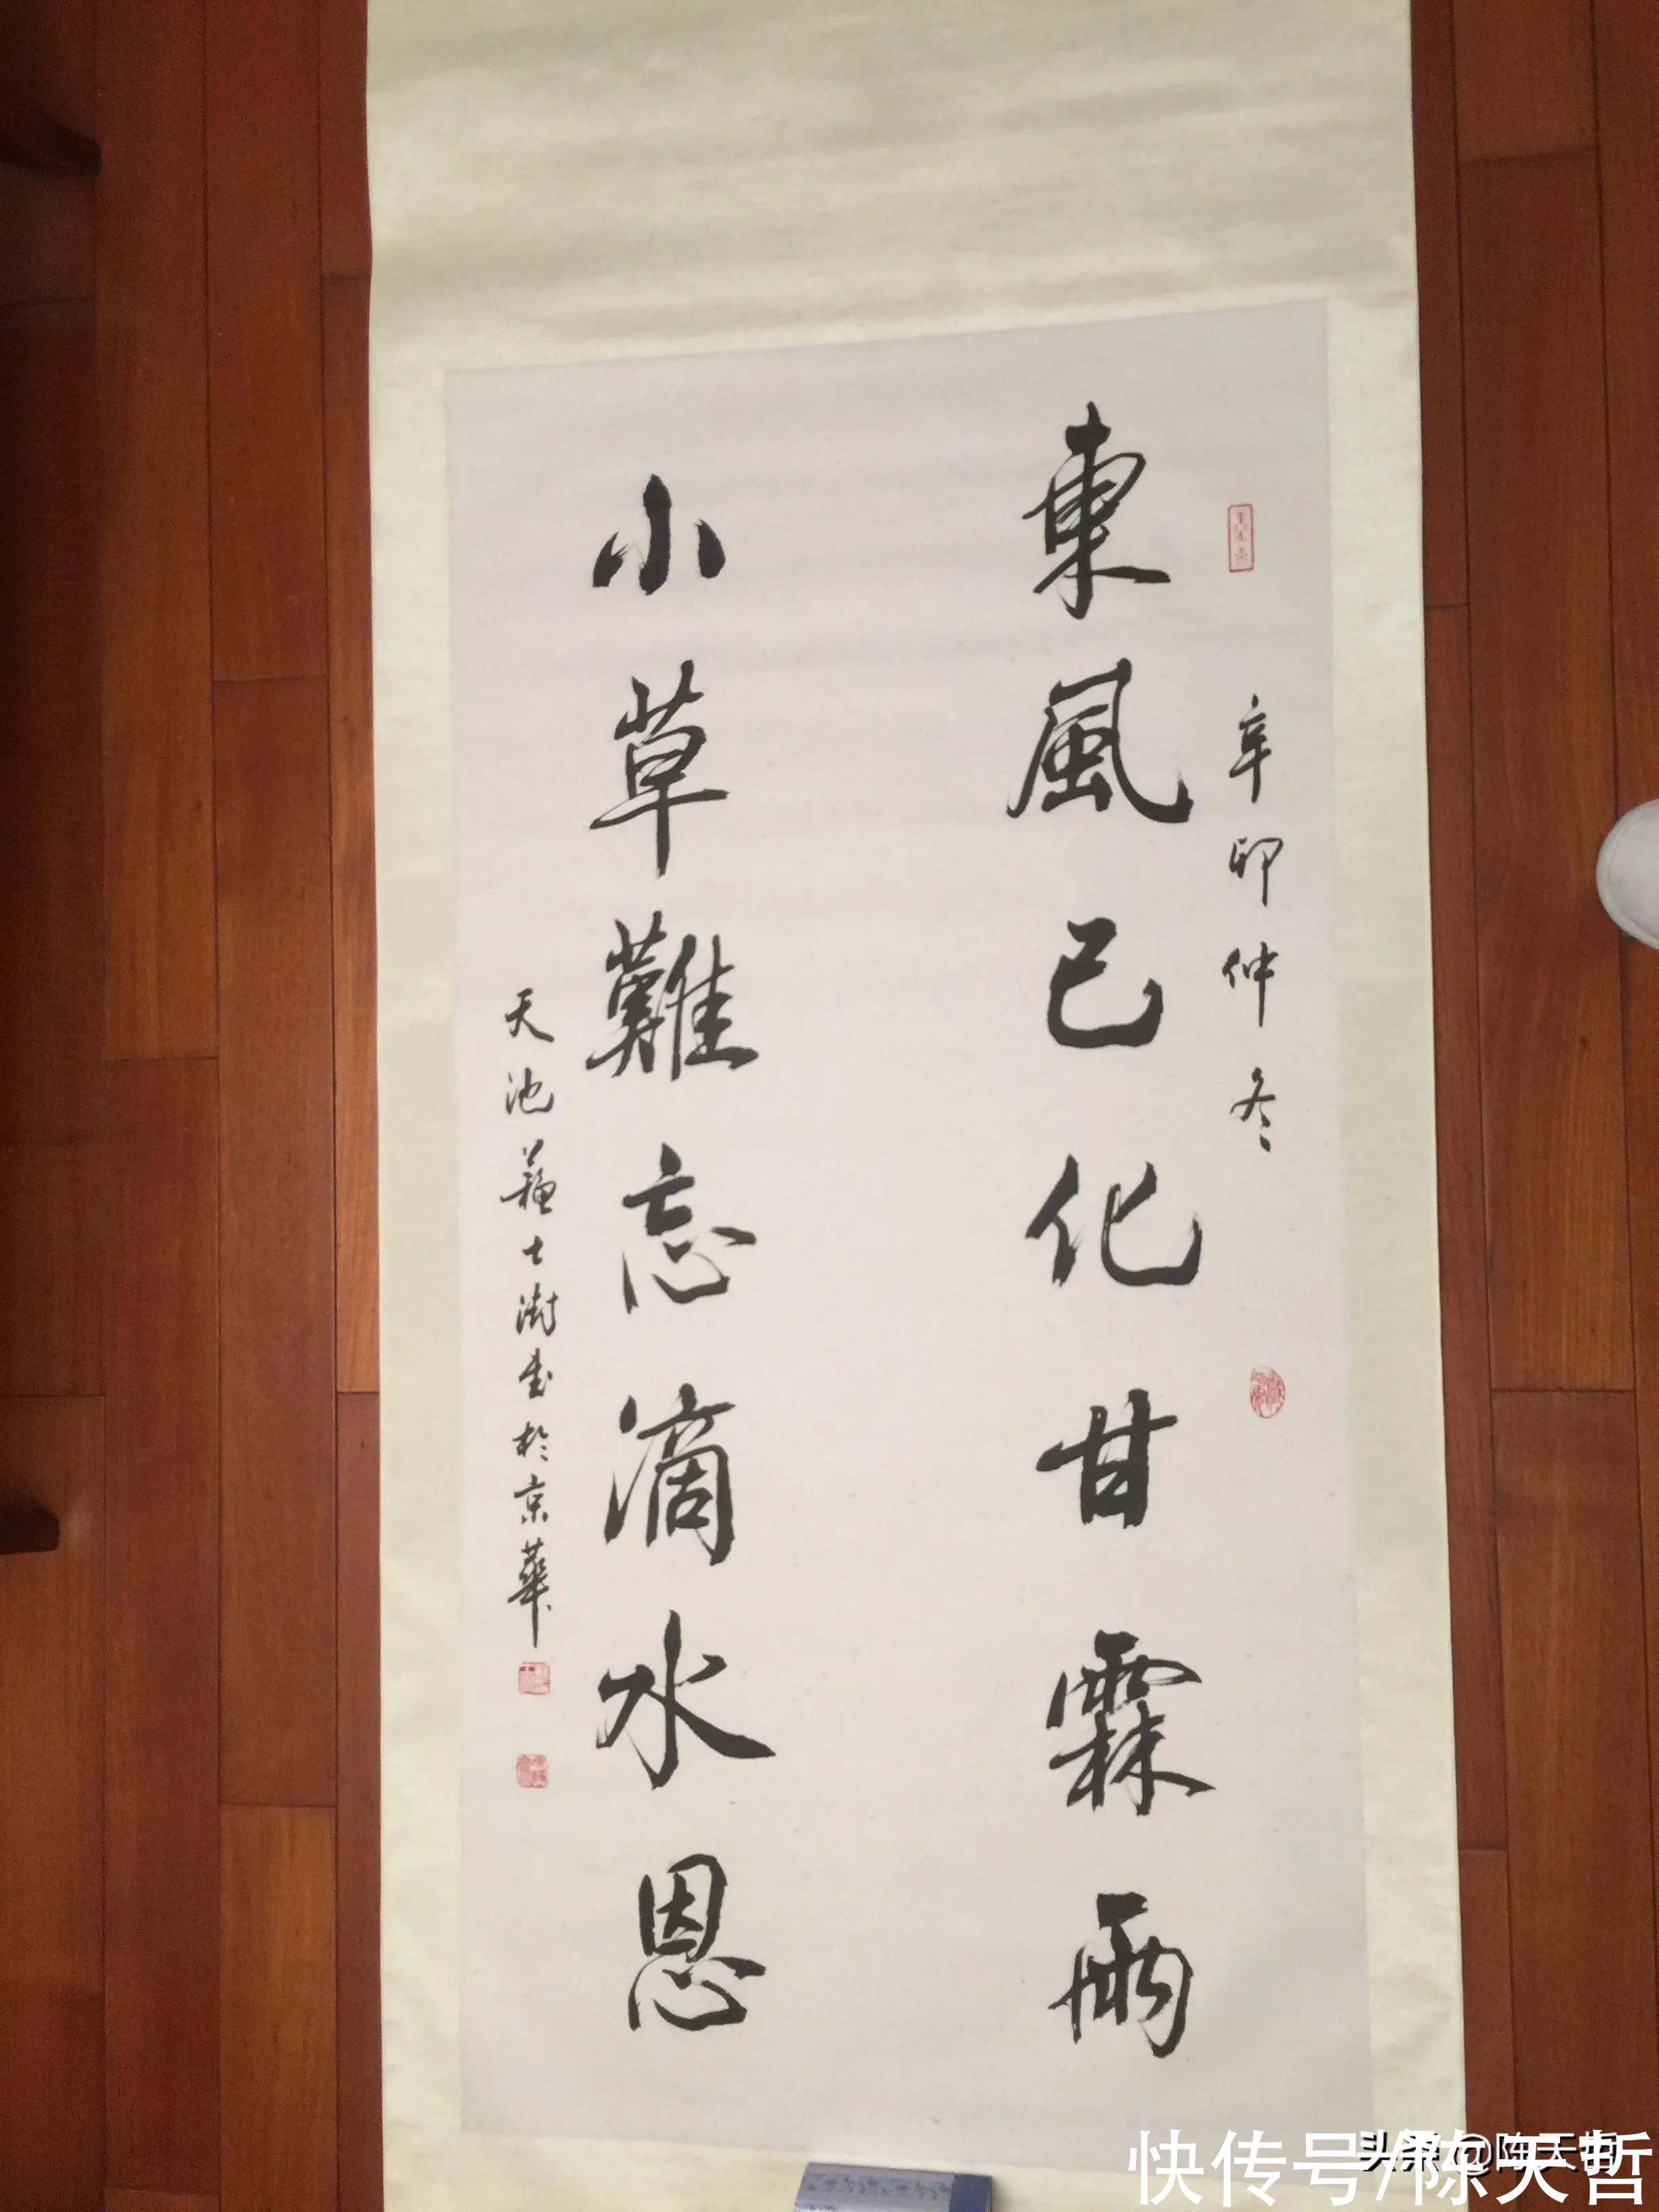 辛卯仲冬
東風已化甘霖雨
小草難忘滴水恩
天池蘇士澍書於京華
头条@陈天哲
快传号/陈天哲